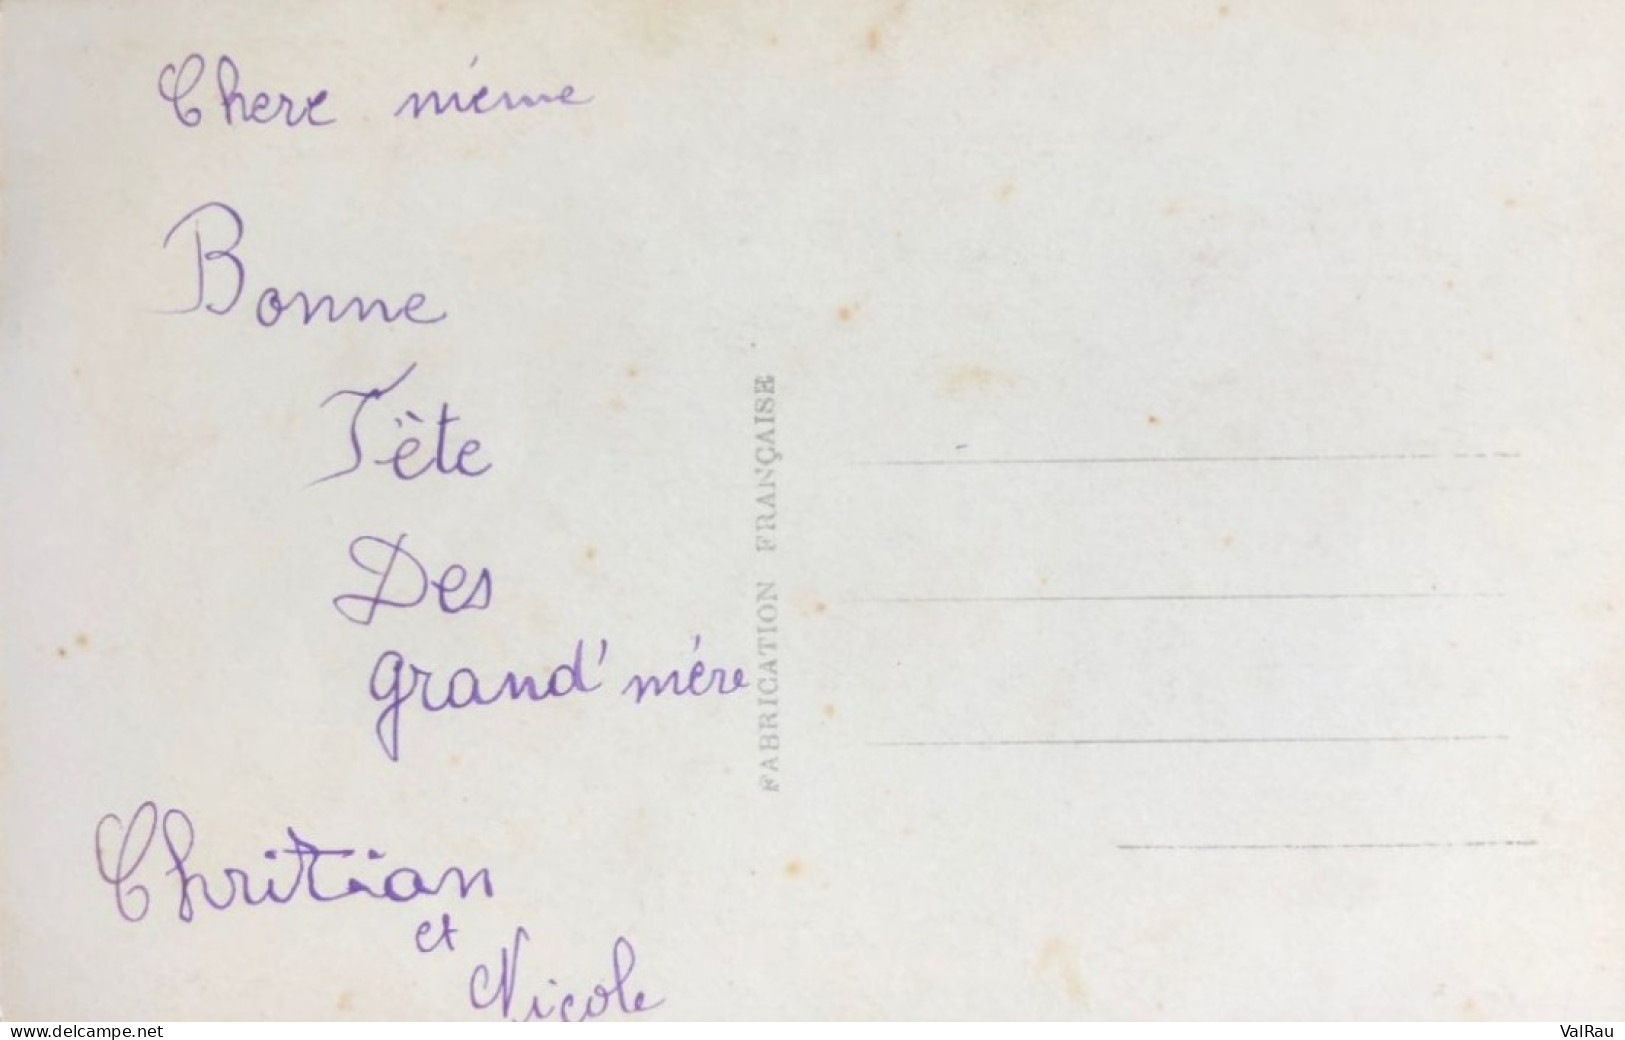 Chere méme
Bonne
Fête
Des
grand' mére
Chritian
et
Nicole
FABRICATION FRANÇAISE
www.delcampe.net
ValRau